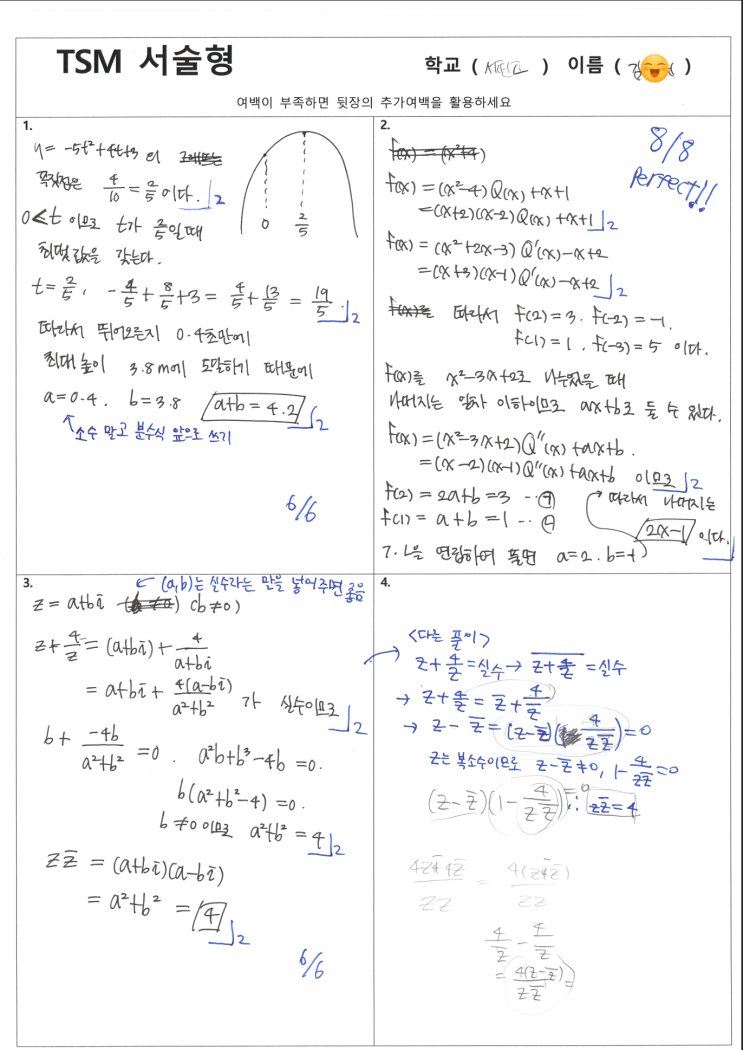 TSM 서술형
학교 ( ) 이름 ( )
여백이 부족하면 뒷장의 추가여백을 활용하세요
1.
y = -5t²+4t+3 의
꼭짓점은 4/10 = 2/5 이다. 2
0≤t 이므로 t가 2/5일 때
최댓값을 갖는다.
0 2/5
t = 2/5, -4/5 + 8/5 + 3 = 4/5 + 13/5 = 19/5 2
따라서 뛰어오른지 0.4초만에
최대 높이 3.8m에 도달하기 때문에
a=0.4. b=3.8 a+b = 4.2 2
↑소수 말고 분수식 앞으로 쓰기
6/6
2.
8/8
Perfect!!
f(x) = (x²+4)
f(x) = (x²-4) Q(x) +x+1
= (x+2)(x-2) Q(x) +x+1 2
f(x) = (x²+2x-3) Q'(x) -x+2
= (x+3)(x-1) Q'(x) -x+2 2
f(x)를 따라서 f(2)=3. f(-2)=-1.
f(1)=1. f(-3)=5 이다.
f(x)를 x²-3x+2로 나누었을 때
나머지는 일차 이하이므로 ax+b로 둘 수 있다.
f(x) = (x²-3x+2)Q''(x)+ax+b.
= (x-2)(x-1)Q''(x)+ax+b 이므로 2
f(2) = 2a+b=3 … ㉠
f(1) = a+b=1 … ㉡
→ 따라서 나머지는
2x-1 이다.
ㄱ.ㄴ을 연립하여 풀면 a=2. b=-1
3.
← (a,b)는 실수라는 말을 넣어주면 좋음
z = a+bi (b≠0)
z + 4/z = (a+bi) + 4/(a+bi)
= a+bi + 4(a-bi)/(a²+b²) 가 실수이므로 2
b + -4b/(a²+b²) = 0. a²b+b³-4b = 0.
b(a²+b²-4) = 0.
b≠0 이므로 a²+b² = 4 2
z z̄ = (a+bi)(a-bi)
= a²+b² = 4 2
6/6
4.
<다른 풀이>
z + 4/z = 실수 → z + 4/z = 실수
→ z + 4/z = z̄ + 4/z̄
→ z - z̄ = (z-z̄)( 4/zz̄) = 0
z는 복소수이므로 z-z̄≠0, 1-4/zz̄=0
(z-z̄)(1-4/zz̄)=0 ∴ zz̄=4
4/z̄ - 4/z
= 4(z-z̄)/zz̄ =